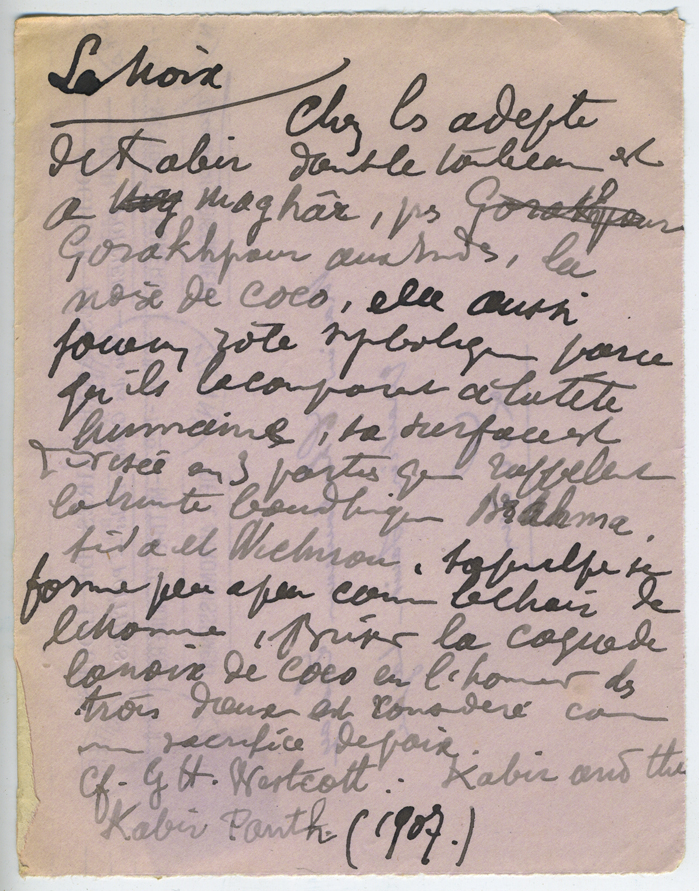 La Noix
Chez ls adepte
de Kabir dont le tombeau est
a Maghâr, prs Gorakhpour
Gorakhpour aux Indes, la
noix de coco, elle aussi
joue un rôle symbolique parce
qu'ils la comparent à la tête
humaine, sa surface est
divisée en 3 parties qui rappellent
la trinité bouddhique Brahma,
Siva et Vichnou, sa pulpe se
forme peu a peu comm la chair de
l'homme, Briser la coque de
la noix de coco en l'honneur des
trois dieux est considéré com
un sacrifice de paix.
Cf. G H. Westcott. Kabir and the
Kabir Panth (1907.)